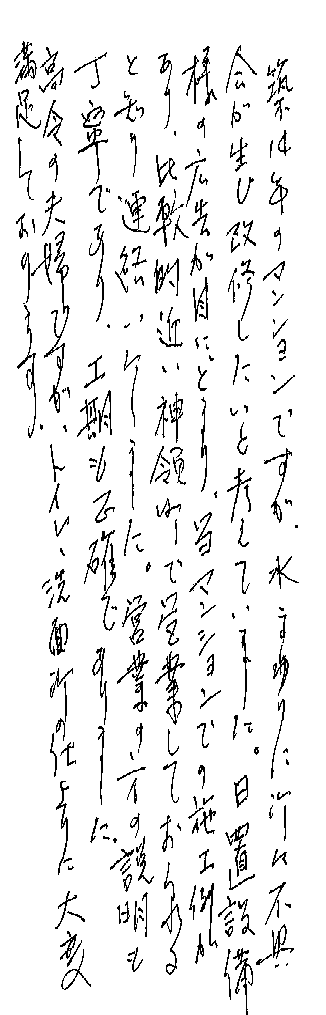 築14年のマンションですが、水まわりに所々不具
合が生じ改修したいと考えていました。日置設備
様の広告が目にとまり、当マンションでの施工例が
あり、比較的近い神領町で営業しておられる
と知り連絡いたしました。営業の方の説明も
丁寧であり、工期も正確でありました。
高令の夫婦ですが、トイレ、洗面所の仕上りに大変
満足しております。